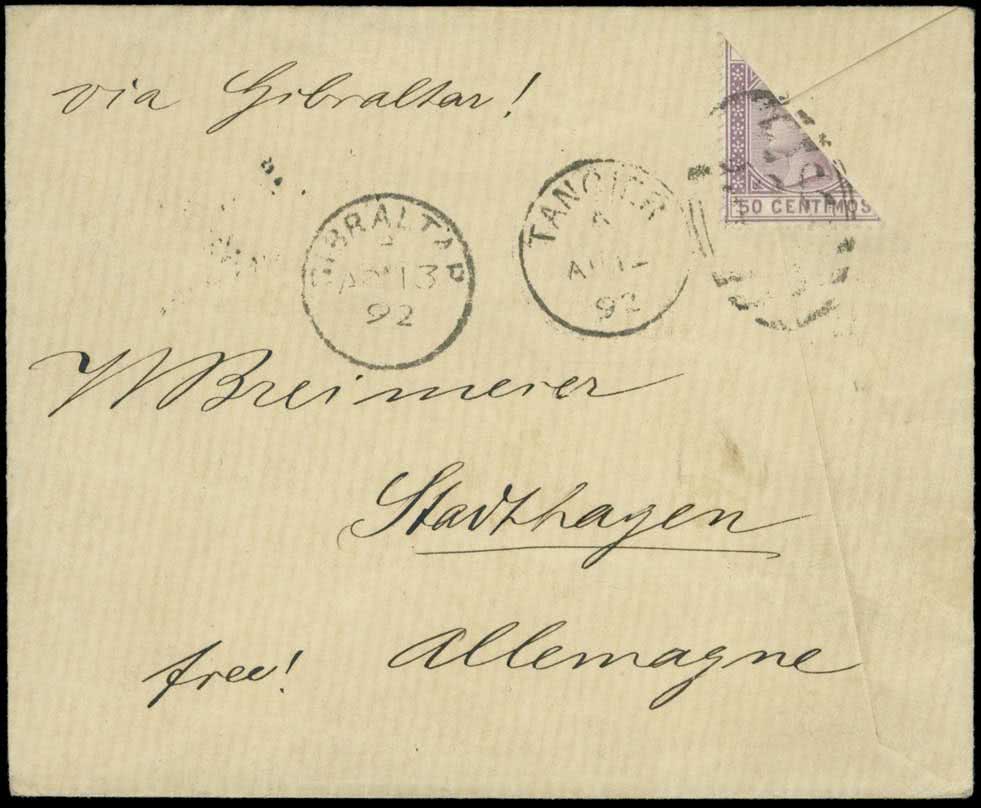 via Gibraltar!
50 CENTIMOS
GIBRALTAR
13
92
TANGIER
A
92
W Breimeier
Stadthagen
Allemagne
free!